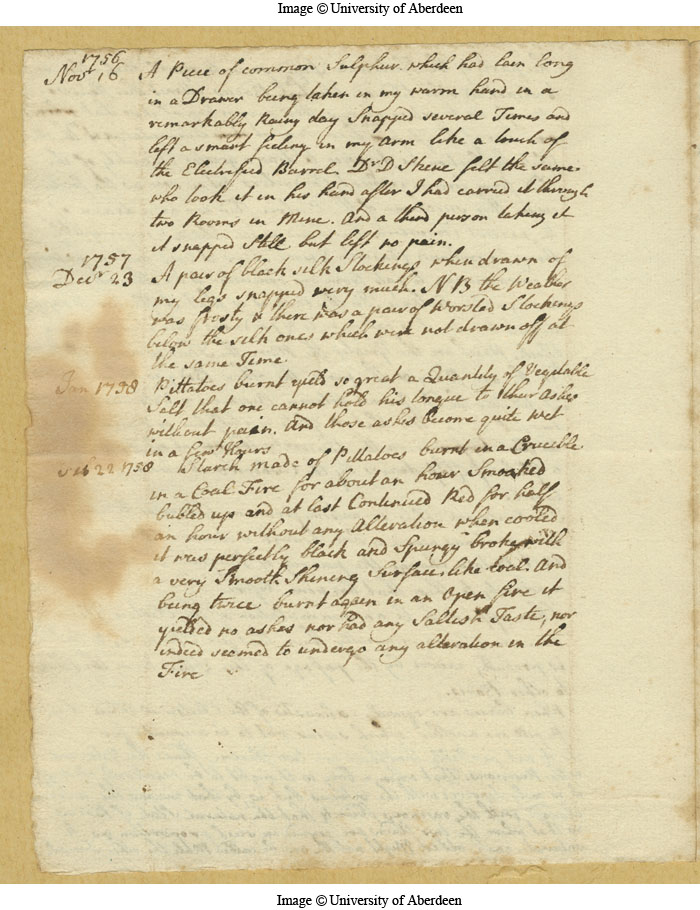 Image © University of Aberdeen
1756
Novr 16 A Piece of common Sulphur which had lain long
in a Drawer being taken in my warm hand in a
remarkably Rainy day Snapped several Times and
left a smart feeling in my arm like a touch of
the Electrified Barrel. Dr D Skene felt the same
who took it in his hand after I had carried it through
two Rooms in Mine. And a third person taking it
it snapped Still but left no pain.
1757
Decr 23 A pair of black silk Stockings when drawn of
my legs snapped very much. NB the Weather
was frosty & there was a pair of Worsted Stockings
below the silk ones which were not drawn off at
the same Time.
Jan 1758 Pittatoes burnt yield so great a Quantity of Vegetable
Salt that one cannot hold his tongue to their Ashes
without pain. And those ashes become quite wet
in a few Hours
Feb 22 1758 Starch made of Pittatoes burnt in a Crucible
in a Coal Fire for about an hour Smoaked
bubled up and at last Continued Red for half
an hour without any Alteration when cooled
it was perfectly black and Spungy broke with
a very Smooth Shining Surface like Coal. And
being twice burnt again in an Open fire it
yielded no ashes nor had any Saltish Taste, nor
indeed seemed to undergo any alteration in the
Fire
Image © University of Aberdeen